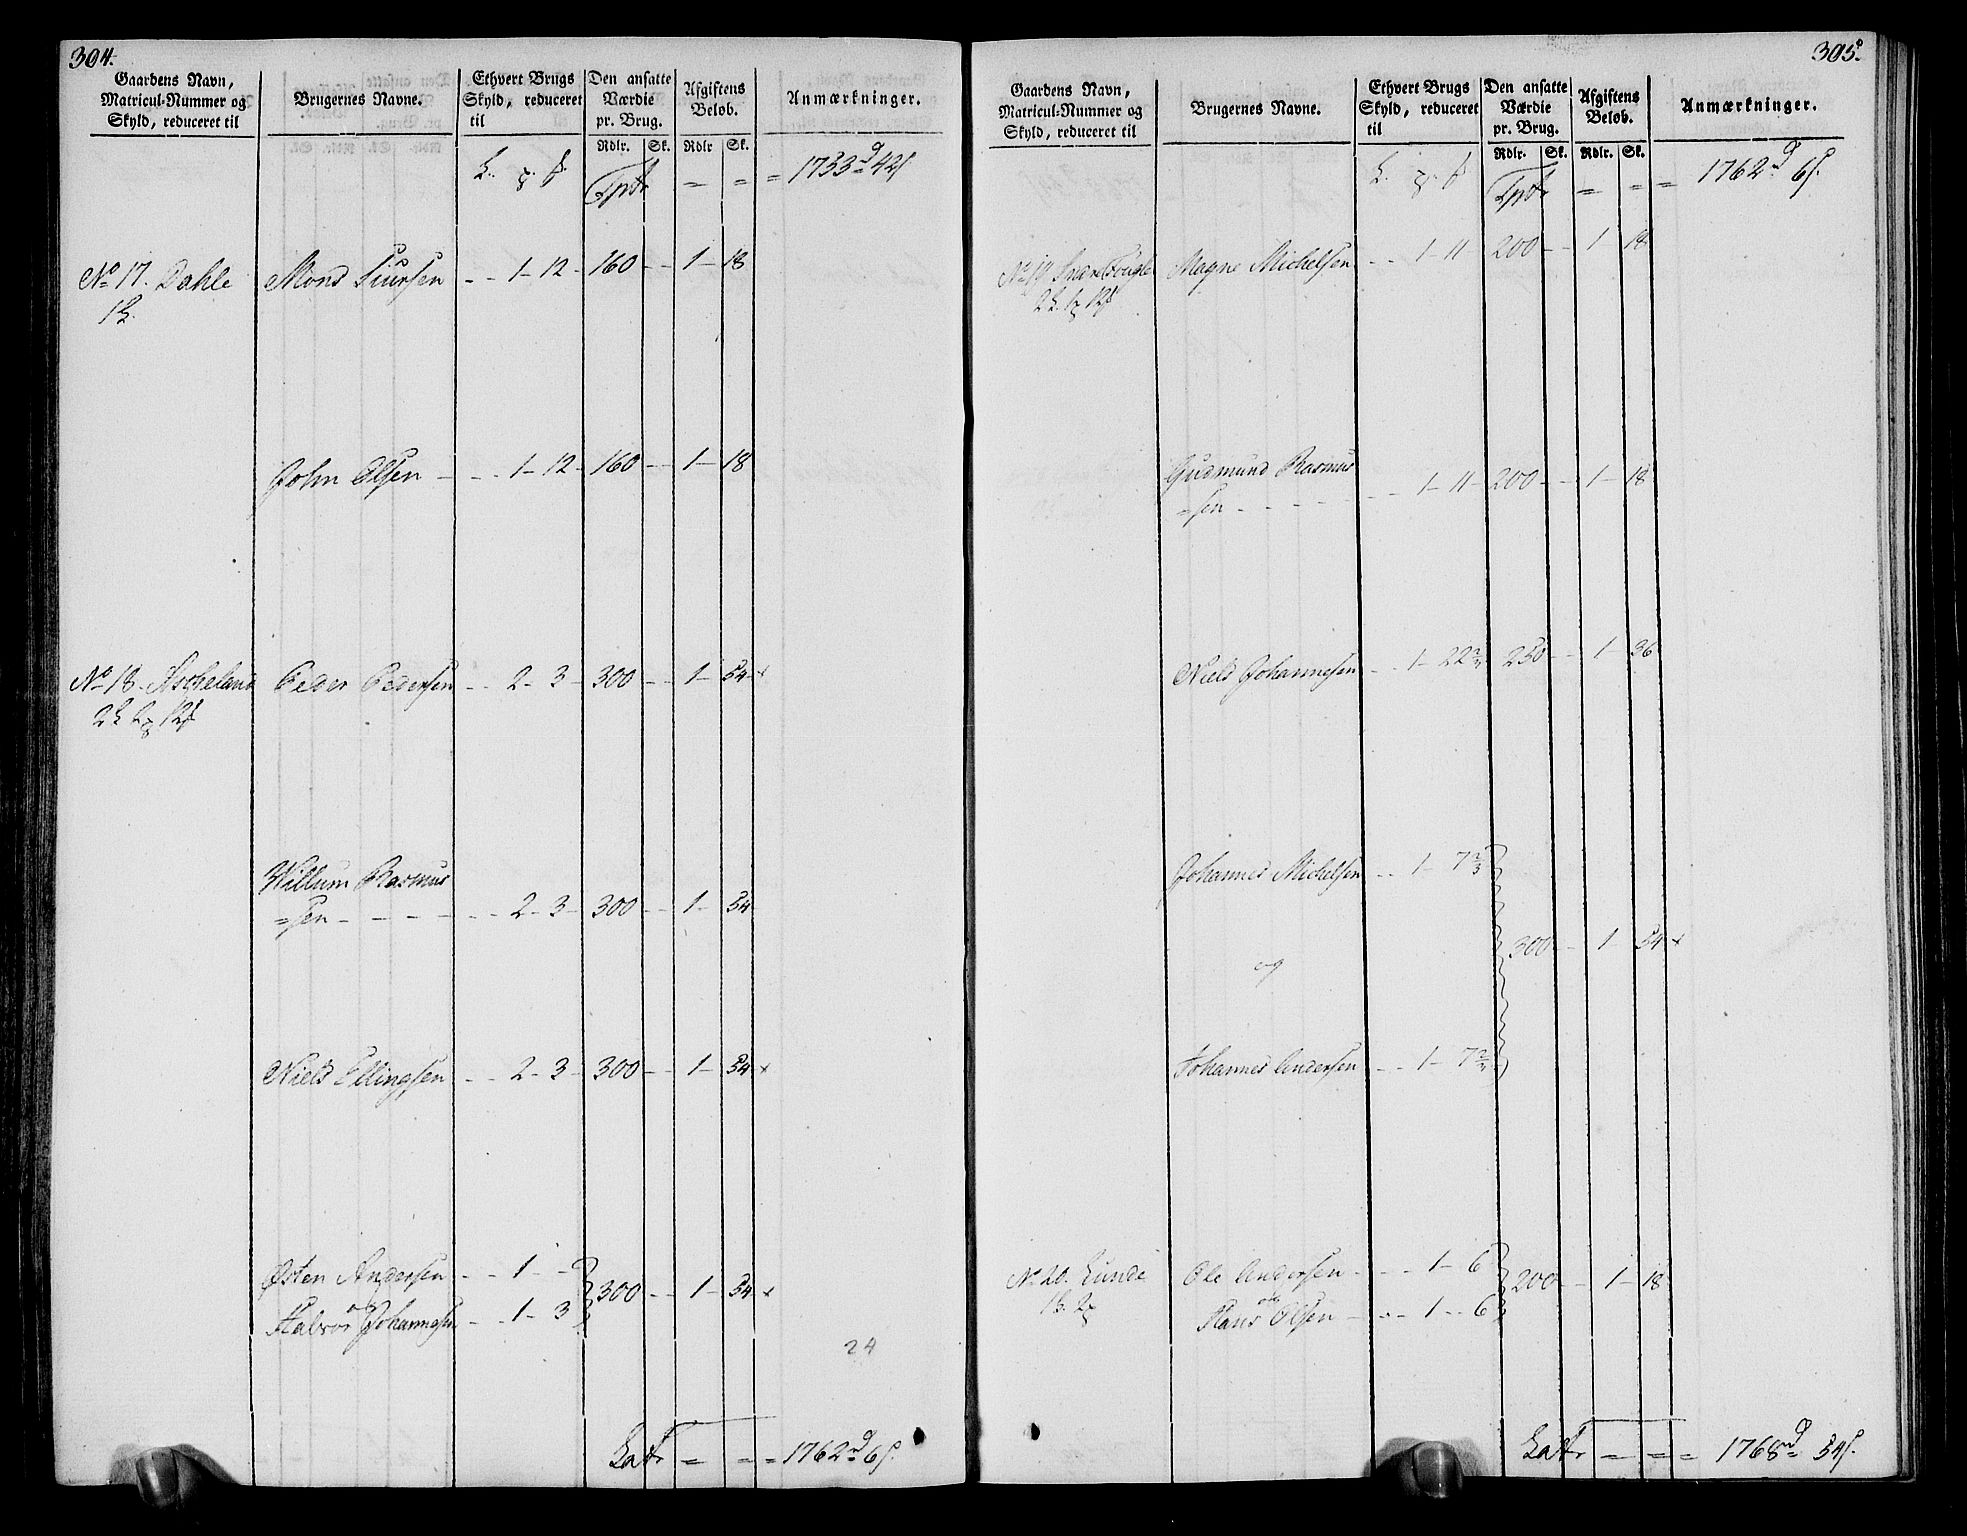 304.
Gaardens Navn,
Matricul-Nummer og
Skyld, reduceret til
Brugernes Navne.
Ethvert Brugs
Skyld, reduceret
til
Den ansatte
Værdie
pr. Brug.
Rdlr. Sk.
Afgiftens
Beløb.
Rdlr Sk.
Anmærkninger.
Tprt = = = 1733 d 42 s
No 17. Dahle Mons Siursen - - 1 - 12 - 160 - - 1 - 18
John Olsen - - - 1 - 12 - 160 - - 1 - 18
No 18. Ascheland Peder Pedersen - - 2 - 3 - 300 - - 1 - 54 x
Willum Rasmus
=sen - - - - - 2 - 3 - 300 - - 1 - 54
Niels Ellingsen - - 2 - 3 - 300 - - 1 - 54 x
Østen Andersen - - 1 - -
og 300 - - 1 - 54 x
Halvor Johannesen - - 1 - 3
24
Latr = = = 1762 d 6 s.
305.
Gaardens Navn,
Matricul-Nummer og
Skyld, reduceret til
Brugernes Navne.
Ethvert Brugs
Skyld, reduceret
til
Den ansatte
Værdie
pr. Brug.
Rdlr. Sk.
Afgiftens
Beløb.
Rdlr. Sk.
Anmærkninger.
Tprt = = = 1762 d 6 s.
No 19 Magne Michelsen - - 1 - 11 200 - - 1 - 18
Gudmund Rasmus
=sen - - - - - - 1 - 11 - 200 - - 1 - 18
Niels Johannesen - - 1 - 22 2/3 250 - - 1 - 36
Johannes Michelsen - - 1 - 7 2/3
og 300 - - 1 - 54 x
Johannes Andersen - - 1 - 7 2/3
No 20. Lunde Ole Andersen - - - 1 - 6
og 200 - - 1 - 18
Hans Olsen - - - 1 - - 6
Latr = = = 1768 d 54 s.